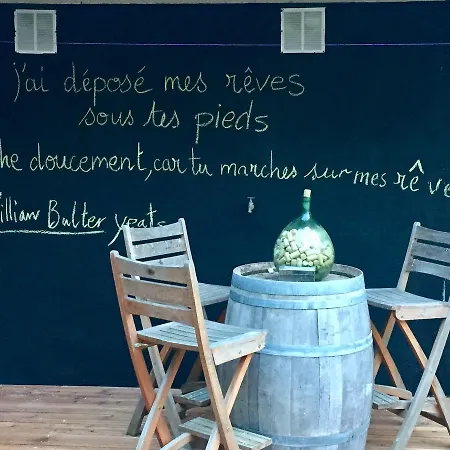 j'ai déposé mes rêves
sous tes pieds
he doucement, car tu marches sur mes rêve
illian Balter yeats